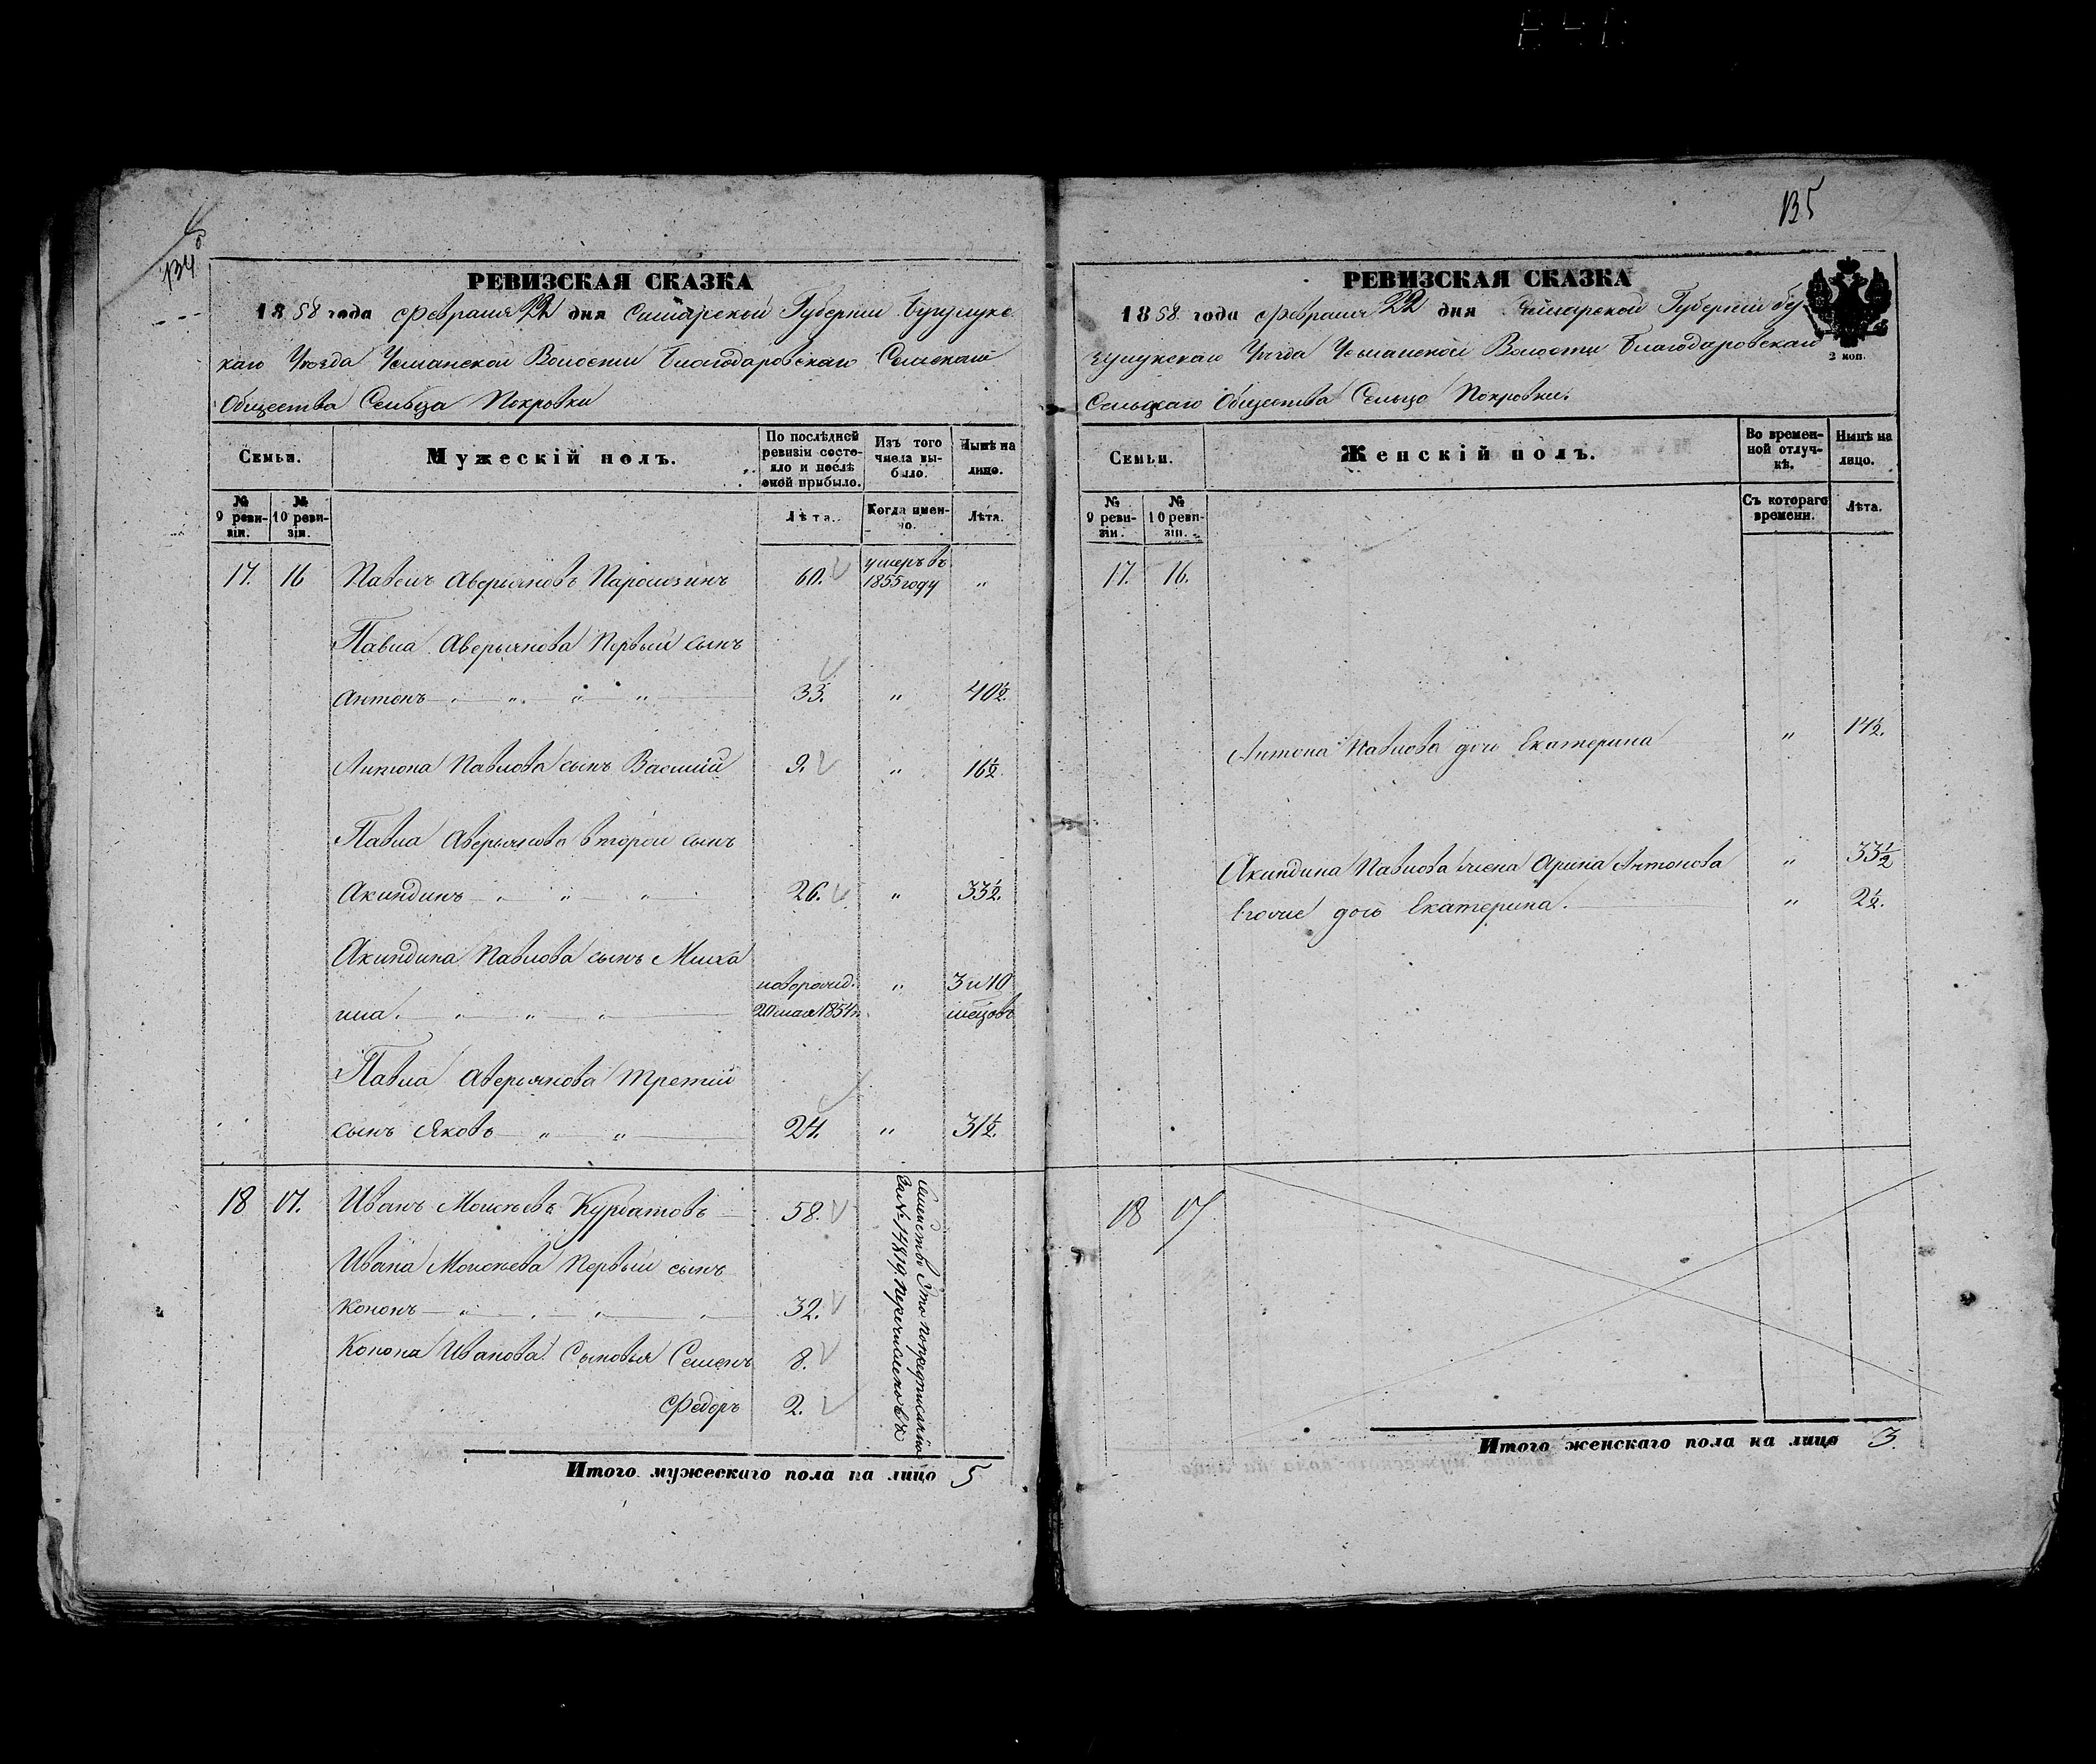 134
РЕВИЗСКАЯ СКАЗКА
1858 года Февраля 22 дня Самарской Губернии Бузулукс
каго Уѣзда Усманской Волости Благодаровскаго Сельскаго
Общества Сельца Покровки
Семьи.
Мужескій полъ.
По послѣдней ревизіи состояло и послѣ оной прибыло.
Изъ того числа выбыло.
Нынѣ на лицо.
№ 9 ревизіи.
№ 10 ревизіи.
Лѣта.
Когда именно.
Лѣта.
17. 16 Павелъ Аверьяновъ 60. умеръ въ 1855 году "
Павла Аверьянова Первый сынъ
Антонъ " " " " 33. " 40½.
Антона Павлова сынъ Василій 9. " 16½
Павла Аверьянова второй сынъ
Акиндинъ " " " 26. " 33½.
Акиндина Павлова сынъ Миха
ила. " " " новорожд. 20 мая 1854 г. " 3 и 10 месцовъ
Павла Аверьянова третій
сынъ Яковъ " " 24. " 31½.
18 17. Иванъ Моисѣевъ Курбатовъ 58.
Ивана Моисѣева Первый сынъ
Кононъ " " " " 32.
Конона Иванова Сыновья Семенъ 8.
Федоръ 2.
Семейство это по предписанію
за № 17819 перечислено въ
Итого мужескаго пола на лицо 5
135
РЕВИЗСКАЯ СКАЗКА
1858 года Февраля 22 дня Самарской Губерніи Бу
зулукскаго Уѣзда Усманской Волости Благодаровскаго
2 коп.
Сельскаго Общества Сельцо Покровки.
Семьи.
Женскій полъ.
Во временной отлучкѣ.
Нынѣ на лицо.
№ 9 ревизіи.
№ 10 ревизіи.
Съ котораго времени.
Лѣта.
17. 16.
Антона Павлова дочь Екатерина " 14½.
Акиндина Павлова жена Арина Антонова " 33½
Егоже дочь Екатерина. " 2½.
18 17
Итого женскаго пола на лицо 3.